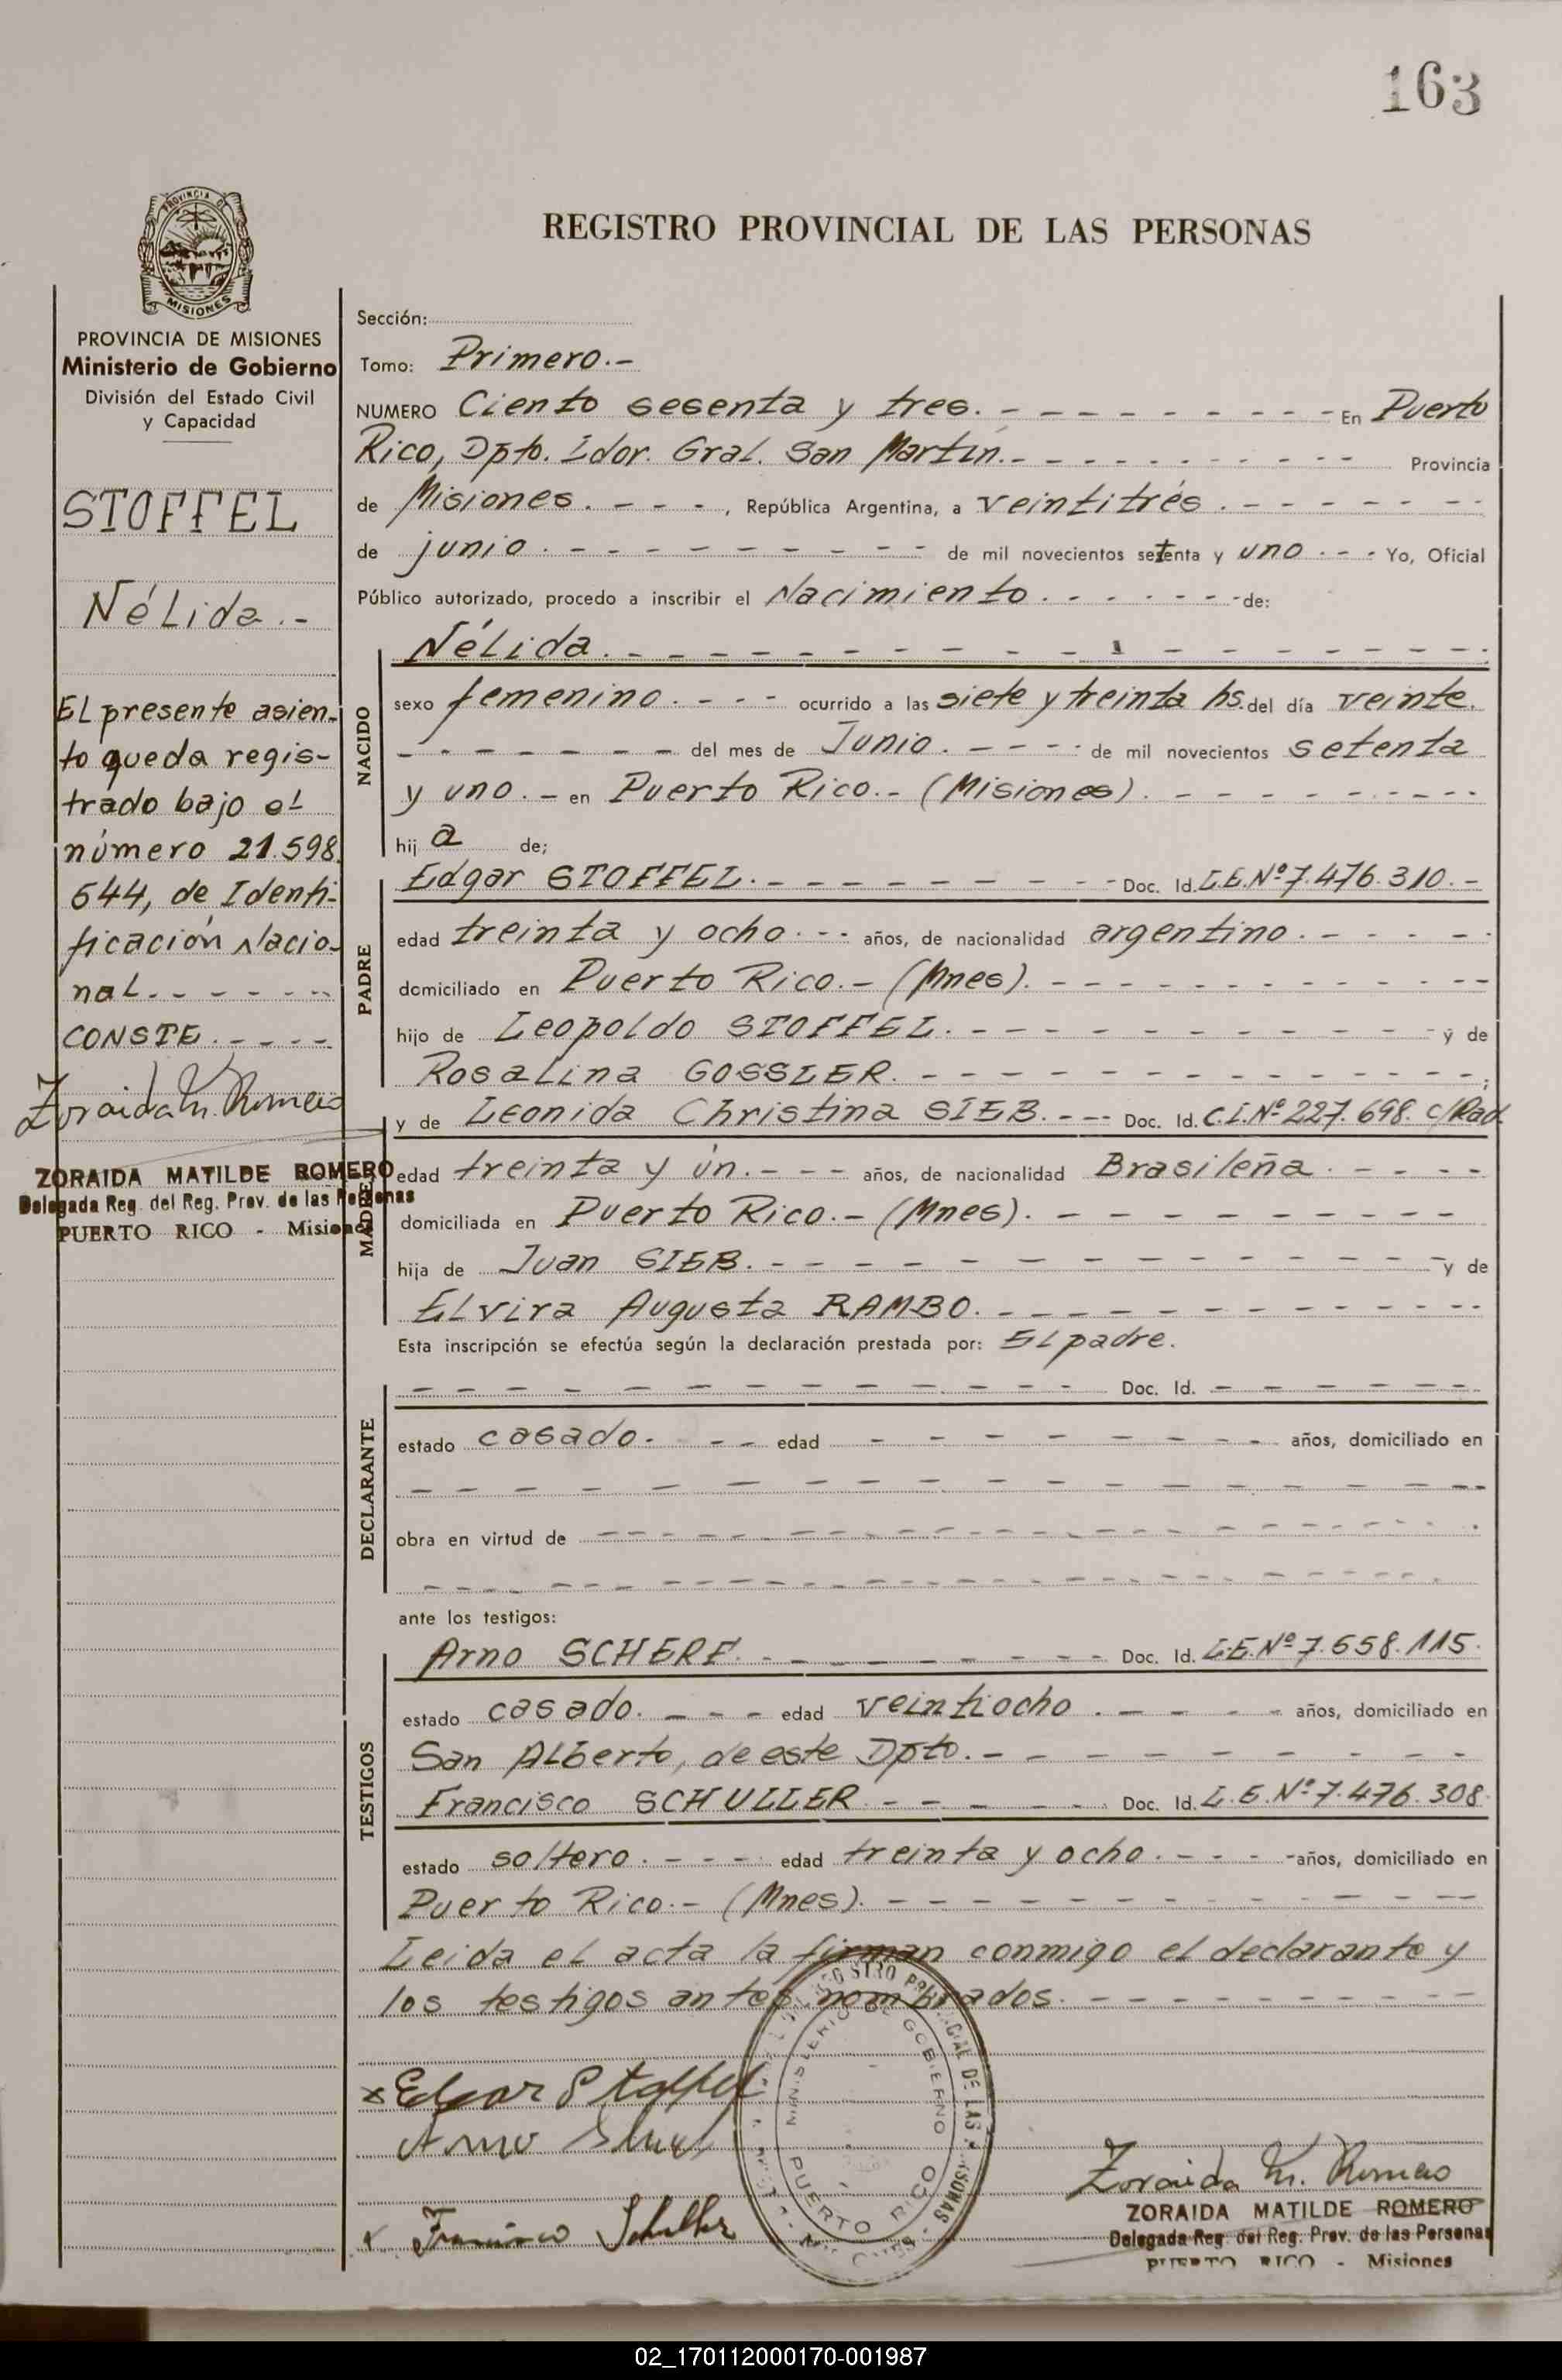 163
PROVINCIA DE
MISIONES
REGISTRO PROVINCIAL DE LAS PERSONAS
PROVINCIA DE MISIONES
Ministerio de Gobierno
División del Estado Civil
y Capacidad
STOFFEL
Nélida.-
El presente asien-
to queda regis-
trado bajo el
número 21.598.
644, de Identi-
ficación Nacio-
nal.- - - - - -
CONSTE.- - - - -
Zoraida M. Romero
ZORAIDA MATILDE ROMERO
Delegada Reg. del Reg. Prov. de las Personas
PUERTO RICO - Misiones
Sección:
Tomo: Primero.-
NUMERO Ciento sesenta y tres. - - - - - - - - - En Puerto
Rico, Dpto. Ldor. Gral. San Martín.- - - - - - - - - - Provincia
de Misiones. - - - -, República Argentina, a veintitrés. - - - - - -
de junio. - - - - - - - - - - de mil novecientos setenta y uno. - - - Yo, Oficial
Público autorizado, procedo a inscribir el Nacimiento. - - - - - - - de:
NACIDO
Nélida. - - - - - - - - - - - - - - - - - -
sexo femenino. - - - ocurrido a las siete y treinta hs. del día veinte.
- - - - - - - - del mes de Junio. - - - - de mil novecientos setenta
y uno. - en Puerto Rico.- (Misiones). - - - - - - - - -
hij a de;
PADRE
Edgar STOFFEL. - - - - - - - - - Doc. Id. L.E.Nº 7.476.310.-
edad treinta y ocho. - - años, de nacionalidad argentino. - - - - -
domiciliado en Puerto Rico.- (Mnes). - - - - - - - - - - - -
hijo de Leopoldo STOFFEL. - - - - - - - - - - - - y de
Rosalina GOSSLER. - - - - - - - - - - - - - - ;
MADRE
y de Leonida Christina SIEB. - - - Doc. Id. C.I.Nº 227.698. c/Rad.
edad treinta y ún. - - - - años, de nacionalidad Brasileña. - - - -
domiciliada en Puerto Rico.- (Mnes). - - - - - - - - - -
hija de Juan SIEB. - - - - - - - - - - - - - - y de
Elvira Augusta RAMBO. - - - - - - - - - - - -
Esta inscripción se efectúa según la declaración prestada por: El padre.
DECLARANTE
- - - - - - - - - - - - - - Doc. Id. - - - - - -
estado casado. - - - edad - - - - - - - - años, domiciliado en
- - - - - - - - - - - - - - - - - - -
obra en virtud de - - - - - - - - - - - - - - - - - -
- - - - - - - - - - - - - - - - - - - - - -
ante los testigos:
TESTIGOS
Arno SCHERF. - - - - - - - - - Doc. Id. L.E.Nº 7.658.115.
estado casado. - - - - edad veintiocho. - - - - - años, domiciliado en
San Alberto, de este Dpto. - - - - - - - - - -
Francisco SCHULLER - - - - - - Doc. Id. L.E.Nº 7.476.308.
estado soltero. - - - - edad treinta y ocho. - - - - años, domiciliado en
Puerto Rico.- (Mnes). - - - - - - - - - - - - -
Leida el acta la firman conmigo el declarante y
los testigos antes nombrados. - - - - - - - - -
MINISTERIO DE GOBIERNO
PUERTO RICO
x Edgar Stoffel
Arno
x Francisco Schuller
Zoraida M. Romero
ZORAIDA MATILDE ROMERO
Delegada Reg. del Reg. Prov. de las Personas
PUERTO RICO - Misiones
02_170112000170-001987